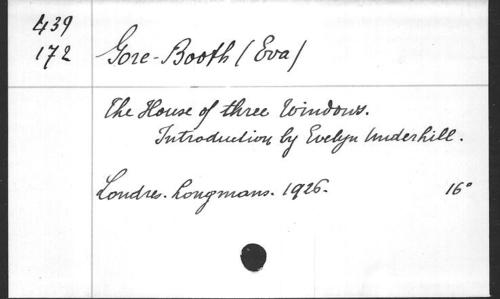 439
172 Gore-Booth (Eva)
The House of three Windows.
Introduction by Evelyn Underhill.
Londres. Longmans. 1926. 16°